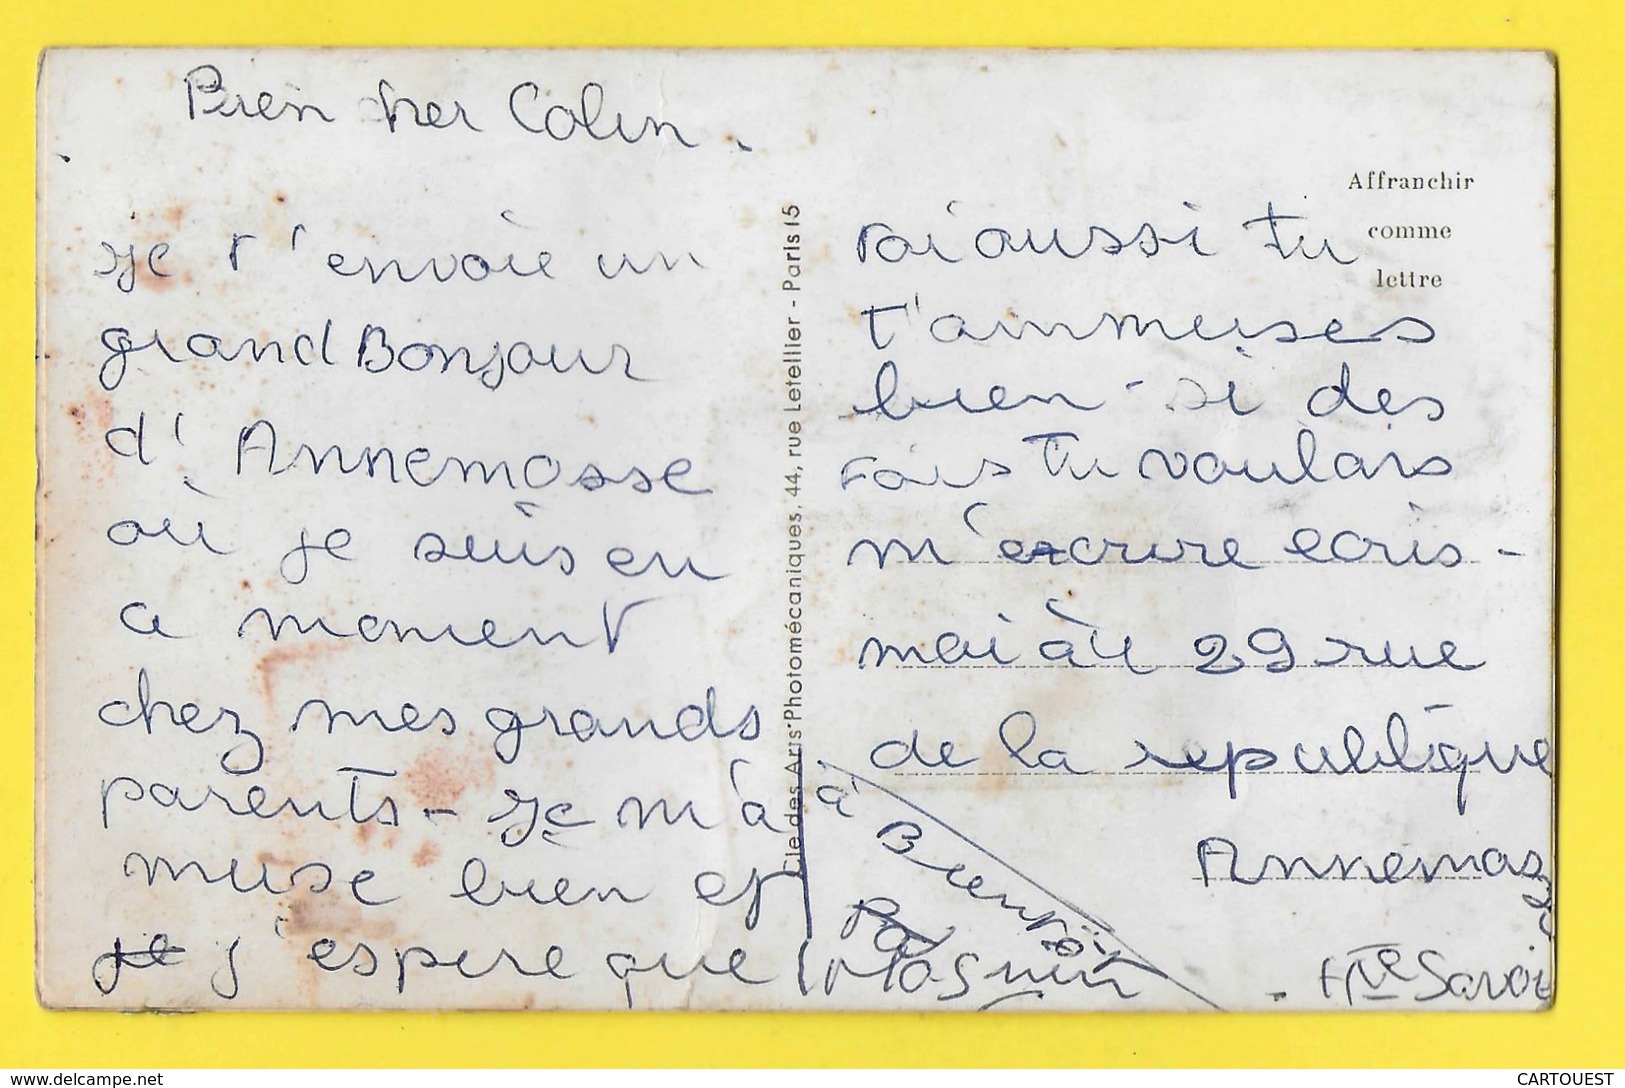 Bien cher Colin.
je t'envoie un
grand Bonjour
d'Annemasse
où je suis en
ce moment
chez mes grands
parents - je m'a
muse bien et
je j'espère que
toi aussi tu
t'ammuses
bien - si des
fois tu voulais
m'ecrire ecris-
moi àu 29 rue
de la republique
Annemasse
Hte Savoie
à Bientôt
Cie des Arts Photomécaniques, 44, rue Letellier - Paris 15
Affranchir
comme
lettre
https://www.delcampe.net
CARTOUEST